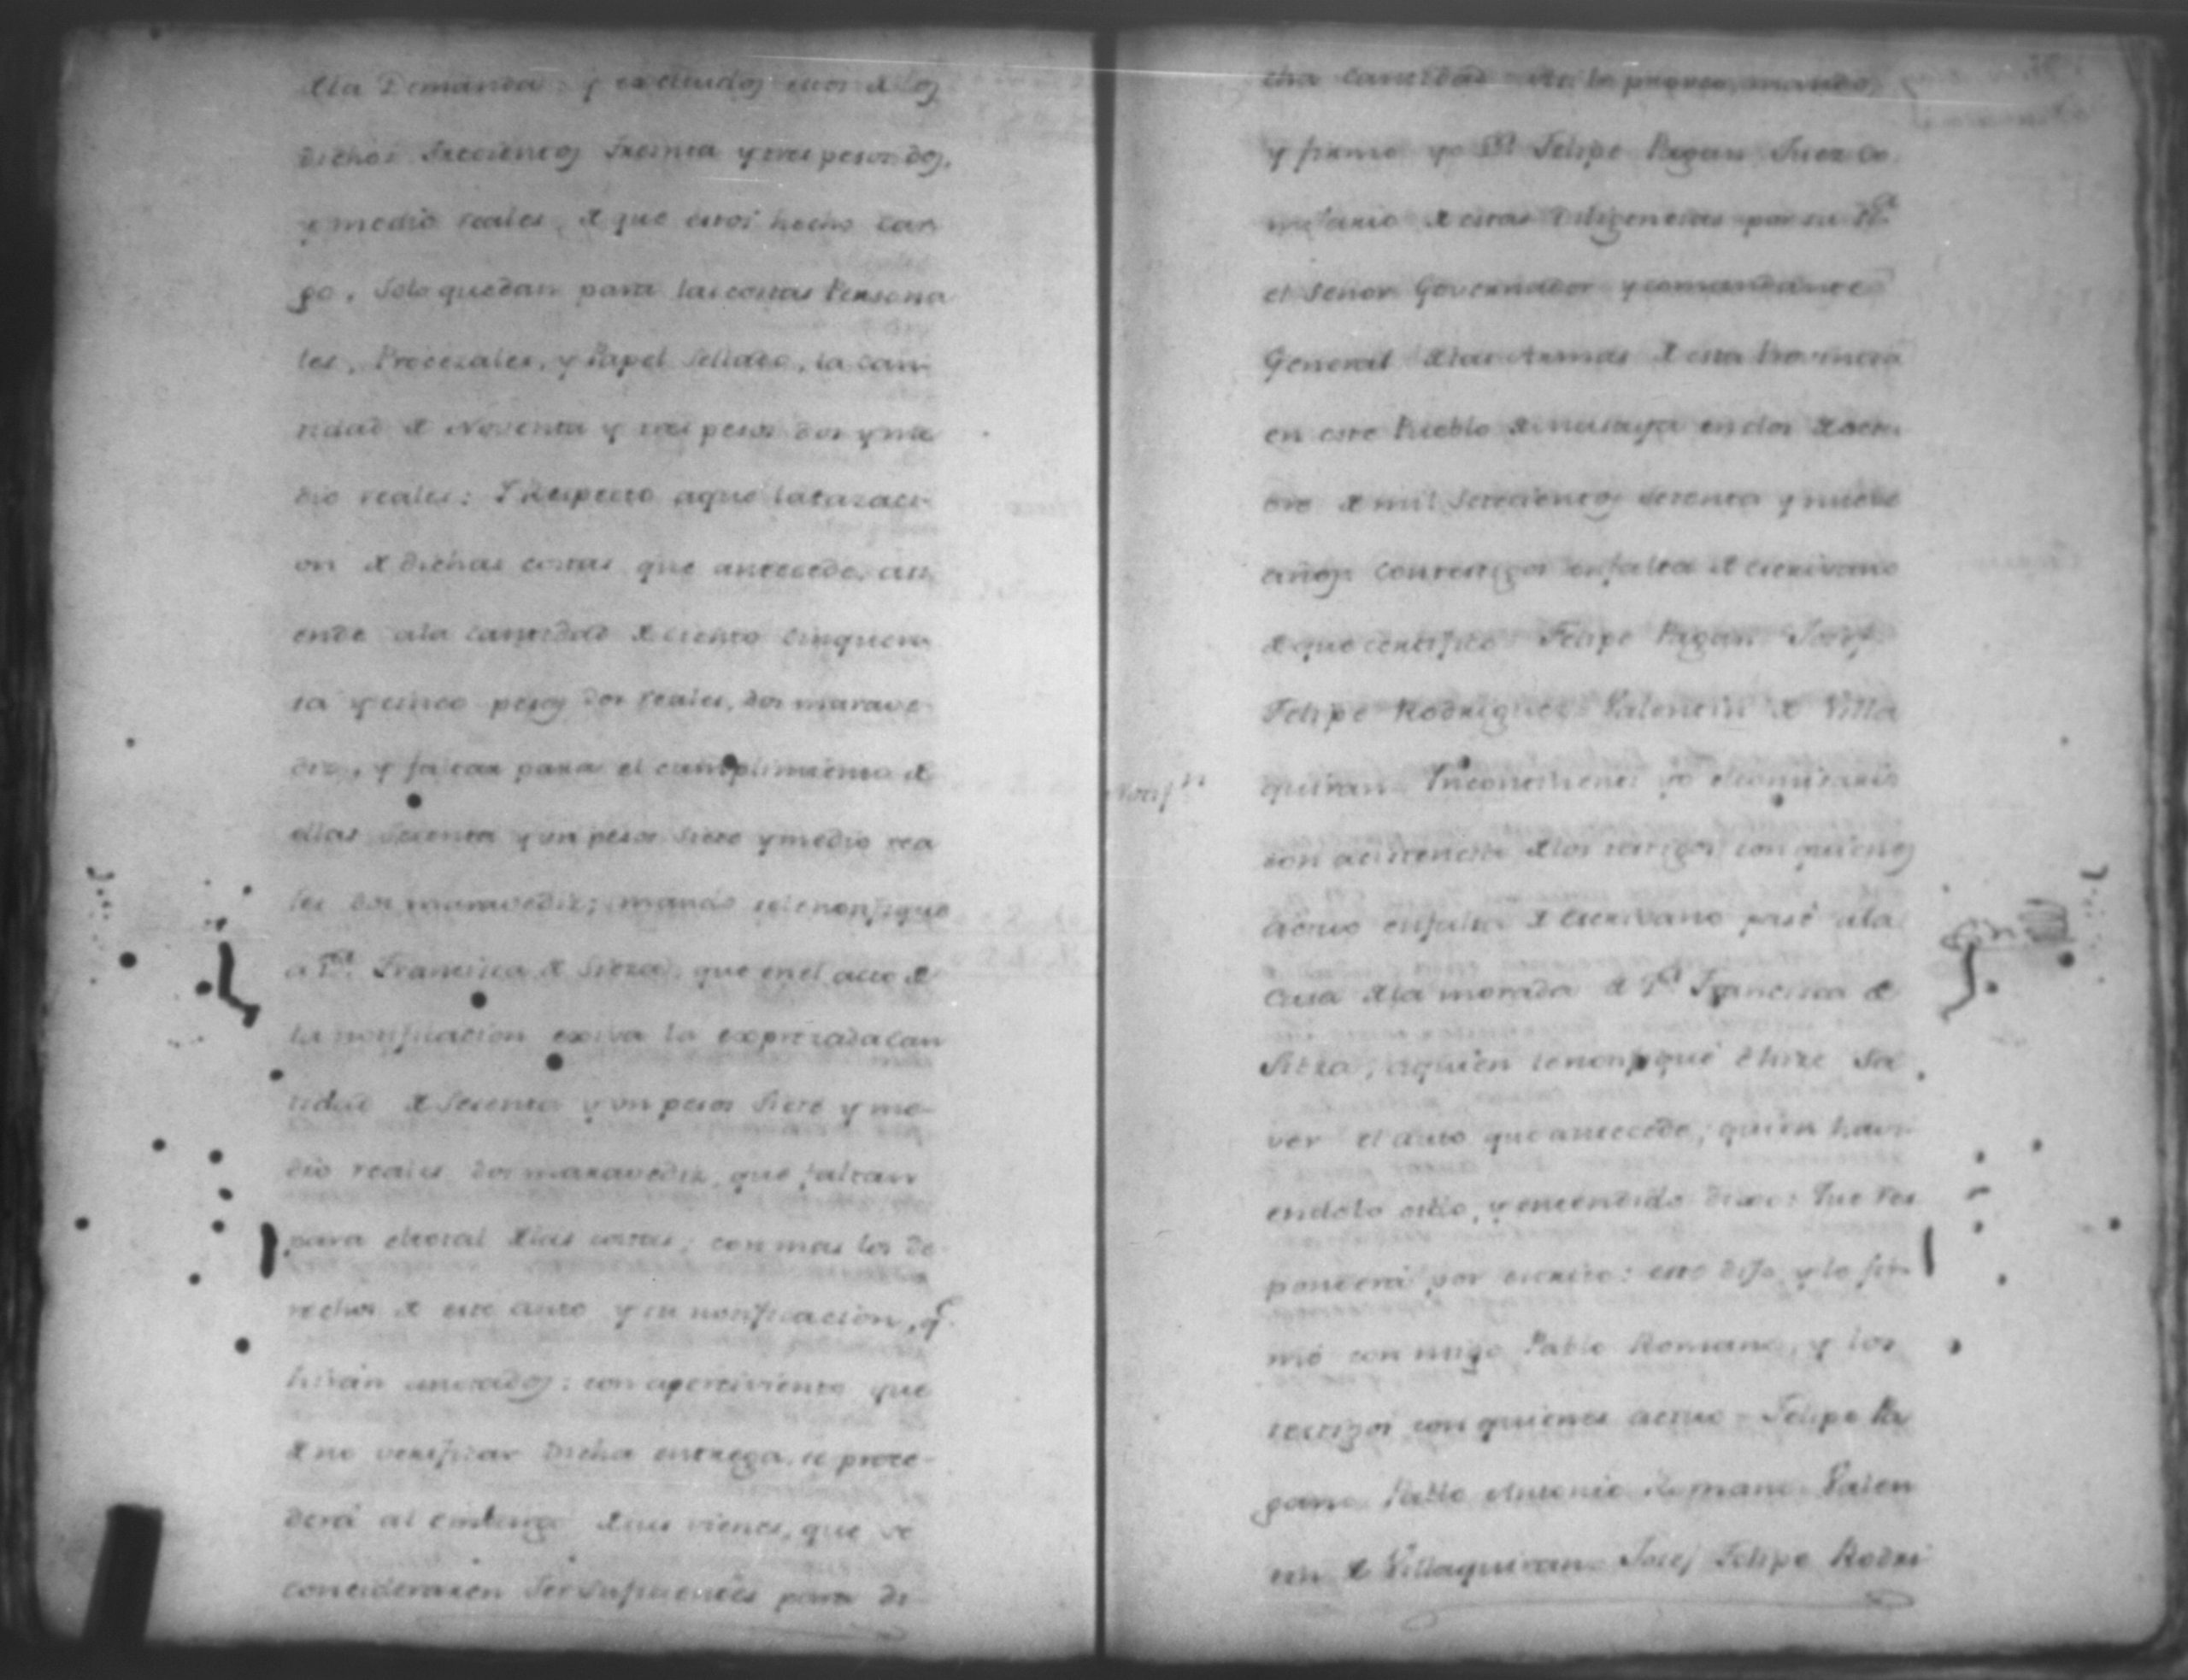 dela Demanda: y excluidos estos de los
dichos trecientos treinta y tres pesos dos,
y medio reales, de que estoi hecho car
go, solo quedan para las costas Persona
les, Procesales, y Papel sellado, la can
tidad de Noventa y tres pesos dos y me
dio reales: Y respecto aque la tazaci
on de dichas costas que antecede, asi
ende ala cantidad de ciento cinquen
ta y cinco pesos dos reales, dos marave
diz, y faltar para el cumplimiento de
ellas sesenta y un pesos siete y medio rea
les dos maravediz; mando se le notifique
a Da. Francisca de Sieza, que en el acto de
la notificacion exiva la expresada can
tidad de sesenta y un pesos siete y me-
dio reales dos maravediz, que faltan
para el total delas costas; con mas los de
rechos de este auto y su notificacion, qe.
hirán anotados: con apercivimento que
de no verificar dicha entrega, se proce-
derá al embargo de sus vienes, que se
consideraren ser suficientes para di
cha cantidad asi lo proveo, mando,
y firmo yo Dn. Felipe Pagan Juez Co
misario de estas Diligencias por su Sa.
el Señor Governador y comandante
General delas Armas de esta Provincia
en este Pueblo de en dos de
bre de mil setecientos setenta y nueve
años con testigos en falta de escrivano
de que certifico Felipe Pagan Josef
Felipe Rodriguez Valentin de Villa
Notifn.
quiran Yncontinenti yo el comisario
con asistencia delos testigos con quienes
actuo en falta de escrivano pasé ala
casa dela morada de Da. Francisca de
Sieza, a quien le notifiqué é hize sa
ver el auto que antecede; quien havi
endolo oido, y entendido dixo: Que res
ponderá por escrito: esto dijo y lo fir
mó con migo Pablo Romano, y los
testigos con quienes actuo = Felipe Pa
gan Pablo Antonio Romano Valen
tin de Villaquiran Josef Felipe Rodri